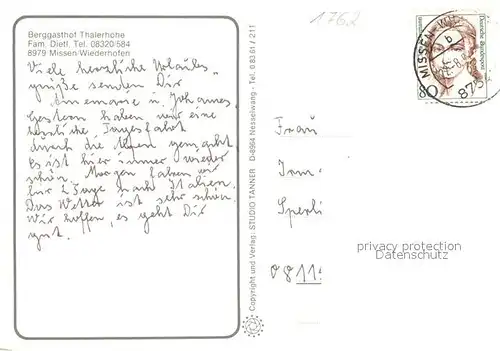 Berggasthof Thalerhöhe
Fam. Dietl, Tel. 08320/584
8979 Missen/Wiederhofen
1762
Viele herzliche Urlaubs-
grüße senden Dir
Annemarie u. Johannes.
Gestern haben wir eine
herrliche Tagesfahrt
durch die Alpen gemacht
Es ist hier immer wieder
schön. Morgen fahren wir
für 2 Tage nach Italien.
Das Wetter ist sehr schön.
Wir hoffen, es geht Dir
gut.
Copyright und Verlag: STUDIO TANNER D-8964 Nesselwang · Tel. 0 83 61 / 211
Deutsche Bundespost
80
MISSEN
b
Frau
Irm
Sperli
0811
privacy protection
DATENSCHUTZ